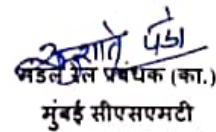 मंडल रेल प्रबंधक (का.)
मुंबई सीएसएमटी